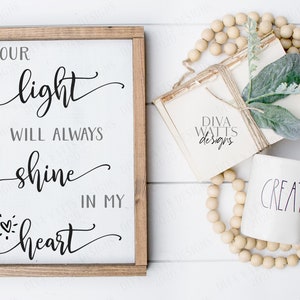 OUR
light
WILL ALWAYS
shine
IN MY
heart
DIVA
WATTS
designs
CREA